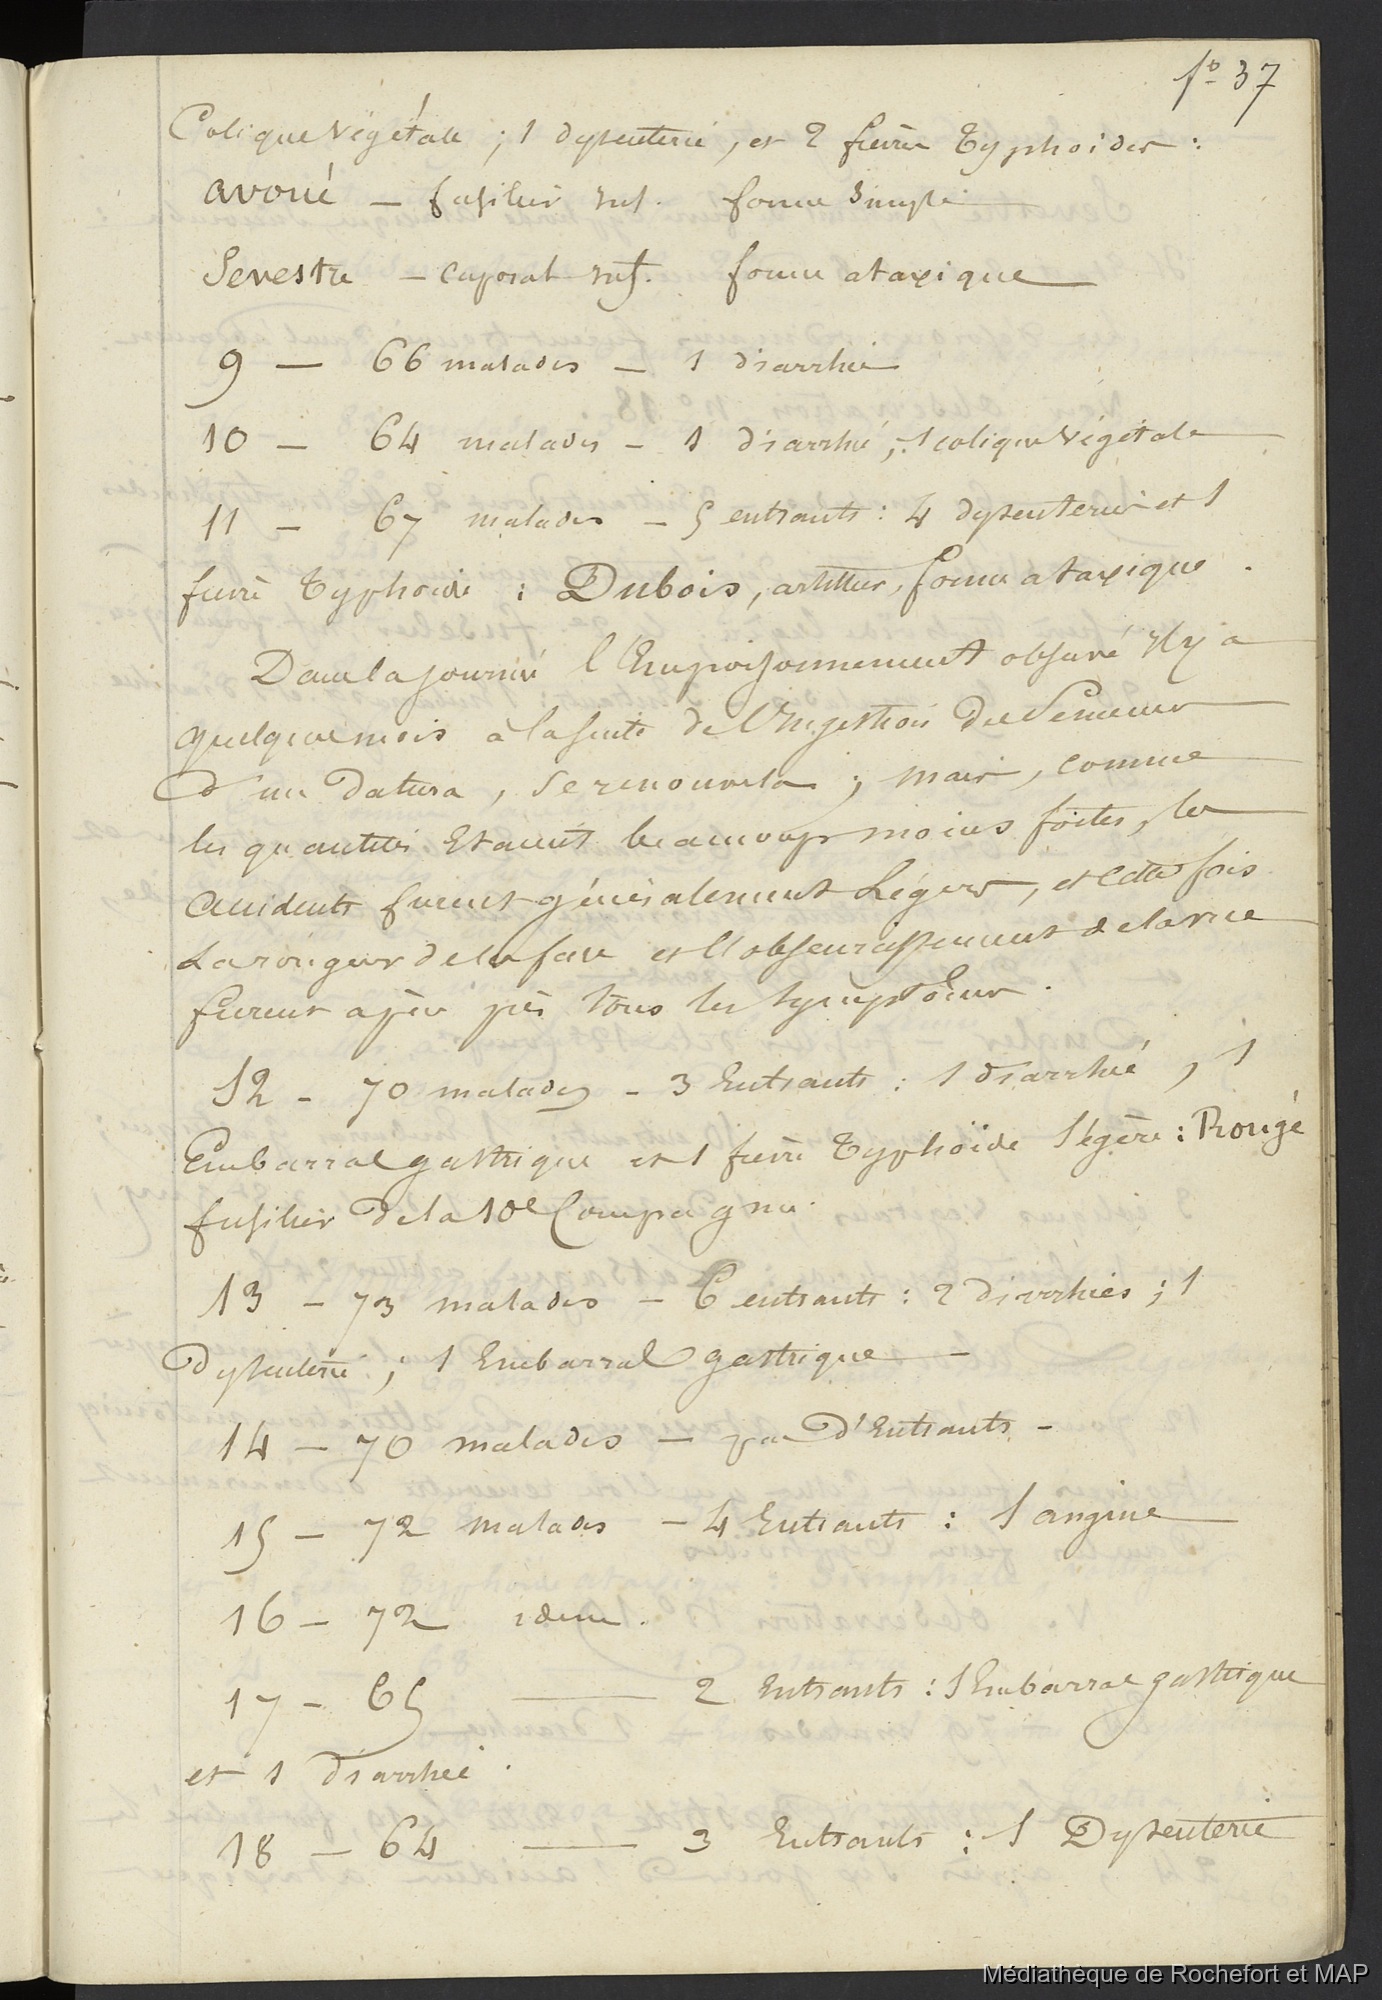 fo 37
Colique végétale ; 1 dysenterie, et 2 fièvres typhoïdes :
avoué — fusilier inf. forme simple
Sevestre — caporal inf. forme ataxique
9 — 66 malades — 1 diarrhée
10 — 64 malades — 1 diarrhée, 1 colique végétale
11 — 67 malades — 5 entrants : 4 dysenteries et 1
fièvre typhoïde : Dubois, artilleur, forme ataxique.
Dans la journée l'Empoisonnement observé il y a
quelques mois à la suite de l'ingestion des semences
d'un Datura, se renouvela ; mais, comme
les quantités étaient beaucoup moins fortes, les
accidents furent généralement légers, et cette fois
la rougeur de la face et l'obscurcissement de la vue
furent à peu près tous les symptômes.
12 — 70 malades — 3 Entrants : 1 diarrhée, 1
Embarras gastrique et 1 fièvre typhoïde légère : Rougé
fusilier de la 10e Compagnie.
13 — 73 malades — 6 entrants : 2 diarrhées ; 1
dysenterie ; 1 Embarras gastrique —
14 — 70 malades — pas d'Entrants —
15 — 72 malades — 4 Entrants : 1 angine
16 — 72 idem.
17 — 65 — 2 Entrants : 1 Embarras gastrique
et 1 diarrhée.
18 — 64 — 3 Entrants : 1 Dysenterie
Médiathèque de Rochefort et MAP